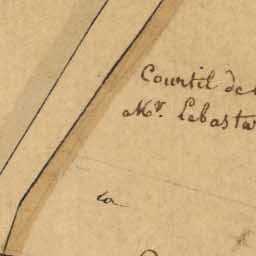 Courtil de
Mr. Lebasta
la